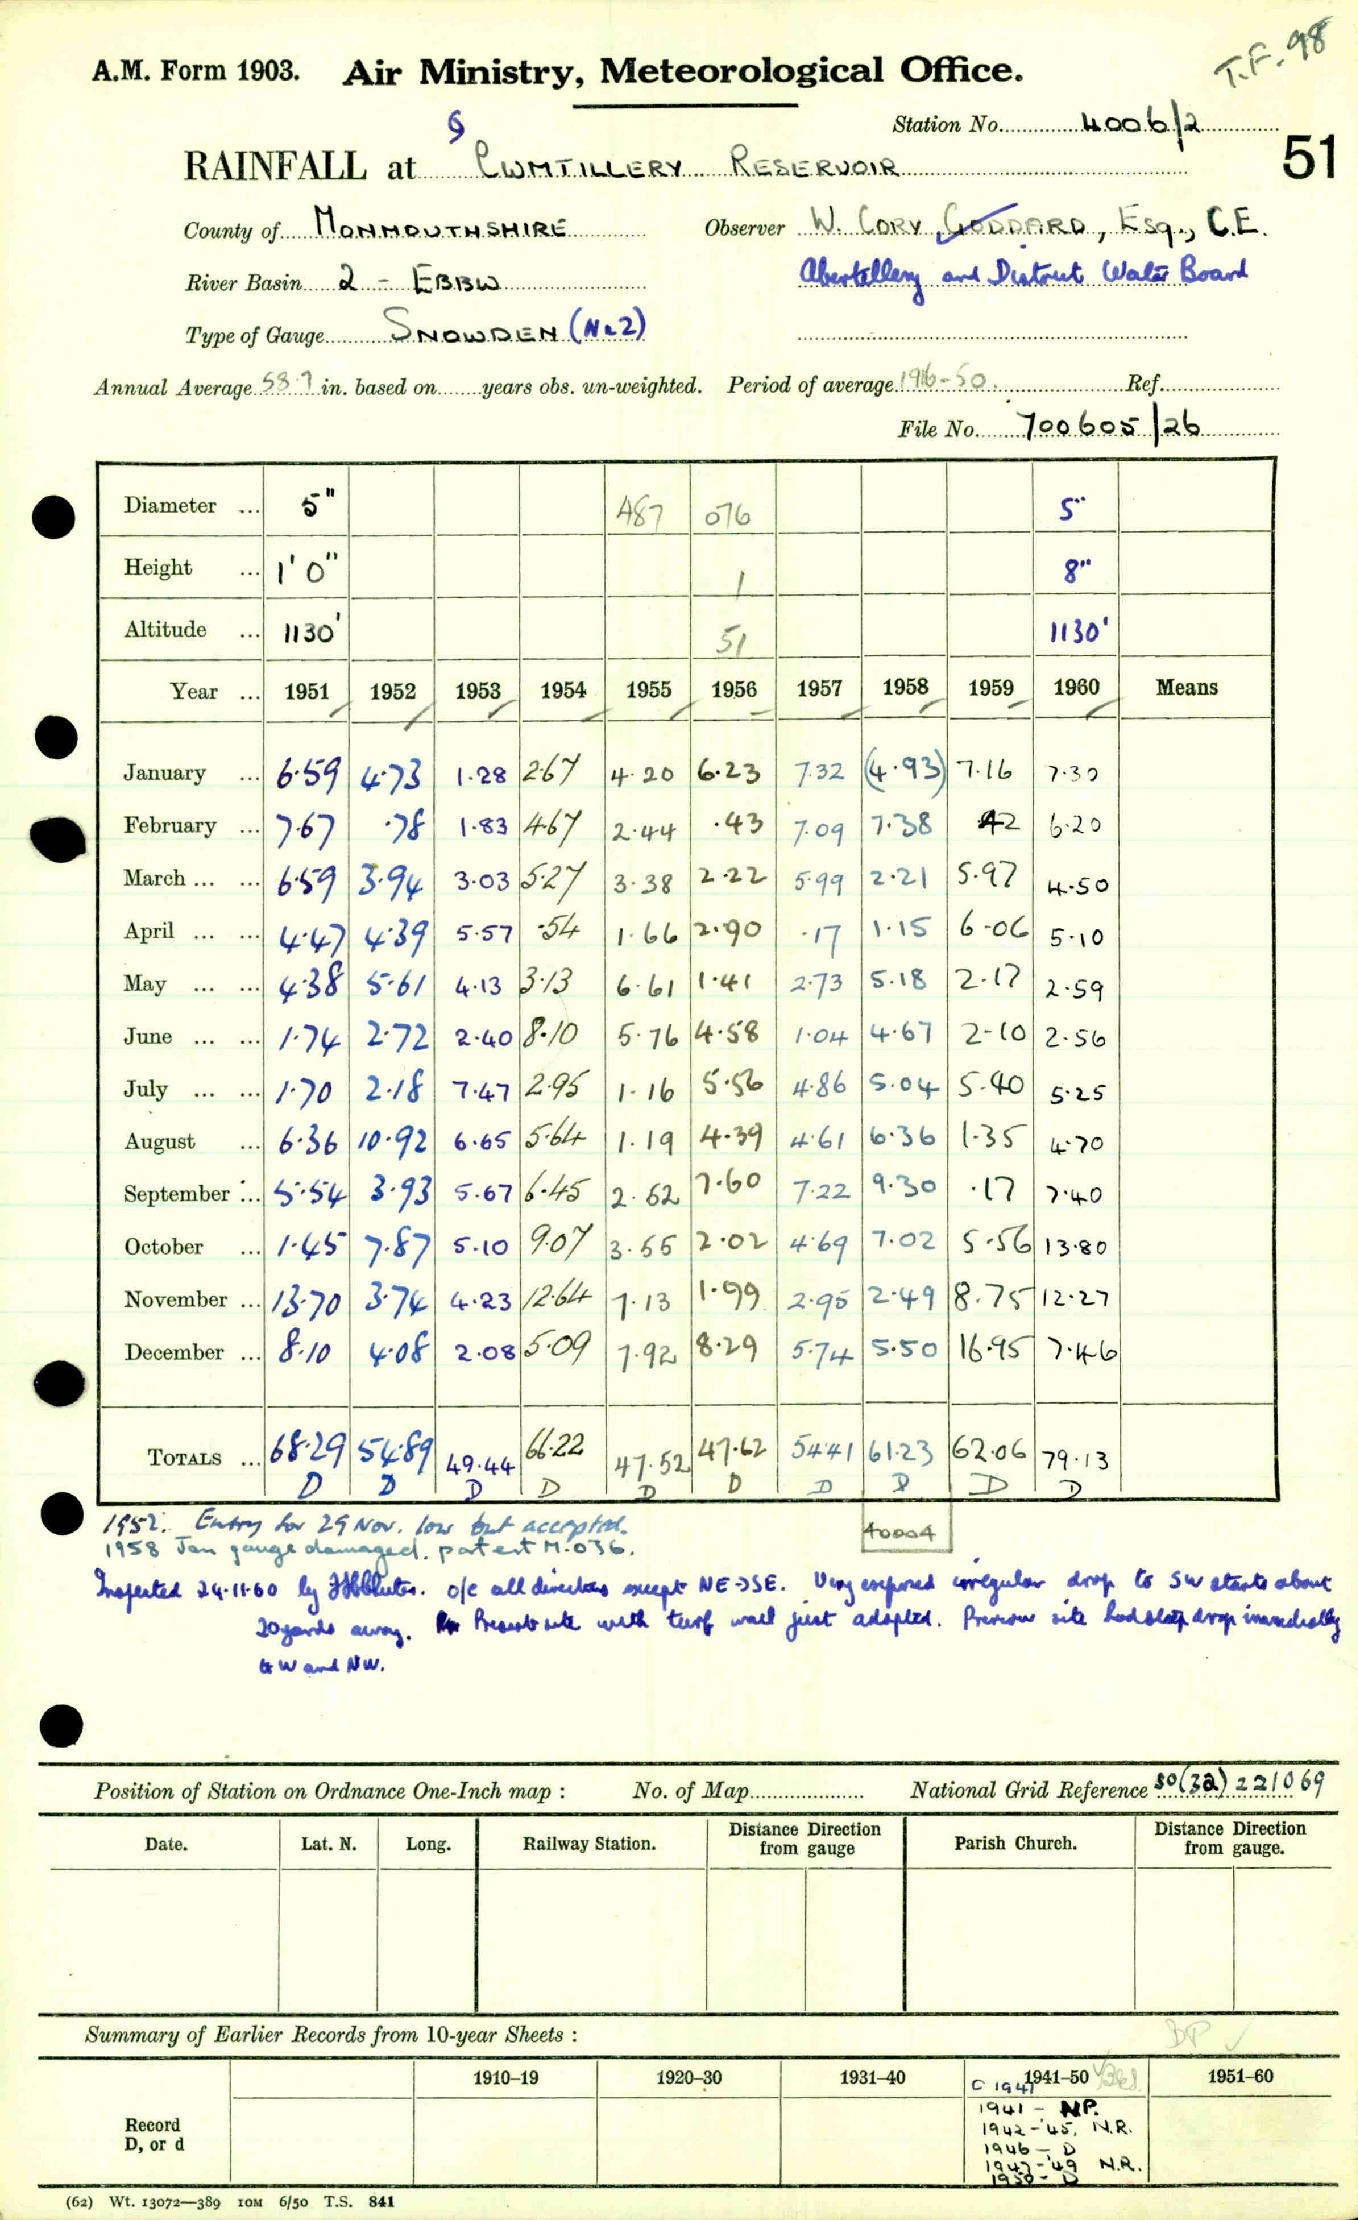 T.F. 98
A.M. Form 1903. Air Ministry, Meteorological Office.
Station No. 4006/2
51
RAINFALL at CWMTILLERY RESERVOIR
County of MONMOUTHSHIRE Observer W. CORY GODDARD, ESQ., C.E.
River Basin 2 - EBBW Abertillery and District Water Board
Type of Gauge SNOWDEN (No 2)
Annual Average 58.7 in. based on years obs. un-weighted. Period of average 1916-50. Ref.
File No. 700605/26
Diameter ... 5" 487 076 5"
Height ... 1' 0" 1 8"
Altitude ... 1130' 51 1130'
Year ... 1951 1952 1953 1954 1955 1956 1957 1958 1959 1960 Means
January ... 6.59 4.73 1.28 2.67 4.20 6.23 7.32 (4.93) 7.16 7.30
February ... 7.67 .78 1.83 4.67 2.44 .43 7.09 7.38 .42 6.20
March ... ... 6.59 3.94 3.03 5.27 3.38 2.22 5.99 2.21 5.97 4.50
April ... ... 4.47 4.39 5.57 .54 1.66 2.90 .17 1.15 6.06 5.10
May ... ... 4.38 5.61 4.13 3.13 6.61 1.41 2.73 5.18 2.17 2.59
June ... ... 1.74 2.72 2.40 8.10 5.76 4.58 1.04 4.67 2-10 2.56
July ... ... 1.70 2.18 7.47 2.95 1.16 5.56 4.86 5.04 5.40 5.25
August ... 6.36 10.92 6.65 5.64 1.19 4.39 4.61 6.36 1.35 4.70
September ... 5.54 3.93 5.67 6.45 2.52 7.60 7.22 9.30 .17 7.40
October ... 1.45 7.87 5.10 9.07 3.55 2.02 4.69 7.02 5.56 13.80
November ... 13.70 3.74 4.23 12.64 7.13 1.99 2.95 2.49 8.75 12.27
December ... 8.10 4.08 2.08 5.09 7.92 8.29 5.74 5.50 16.95 7.46
TOTALS ... 68.29 54.89 49.44 66.22 47.52 47.62 54.41 61.23 62.06 79.13
D D D D D D D D D D
1952. Entry for 29 Nov. low but accepted. 40004
1958 Jan gauge damaged. part est M.O36.
Inspected 24.11.60 by o/c all directions except NE->SE. Very exposed irregular drop to SW starts about
20 yards away. Present site with turf wall just adopted. Previous site had steep drop immediately
to W and NW.
Position of Station on Ordnance One-Inch map : No. of Map National Grid Reference SO(32) 221069
Date. Lat. N. Long. Railway Station. Distance from Direction gauge Parish Church. Distance from Direction gauge.
Summary of Earlier Records from 10-year Sheets : BP
1910–19 1920–30 1931–40 1941–50 1951–60
C 1941
Record
D, or d
1941 - NP.
1942-'45. N.R.
1946 - D
1947-'49 N.R.
1950 - D
(62) Wt. 13072—389 10M 6/50 T.S. 841